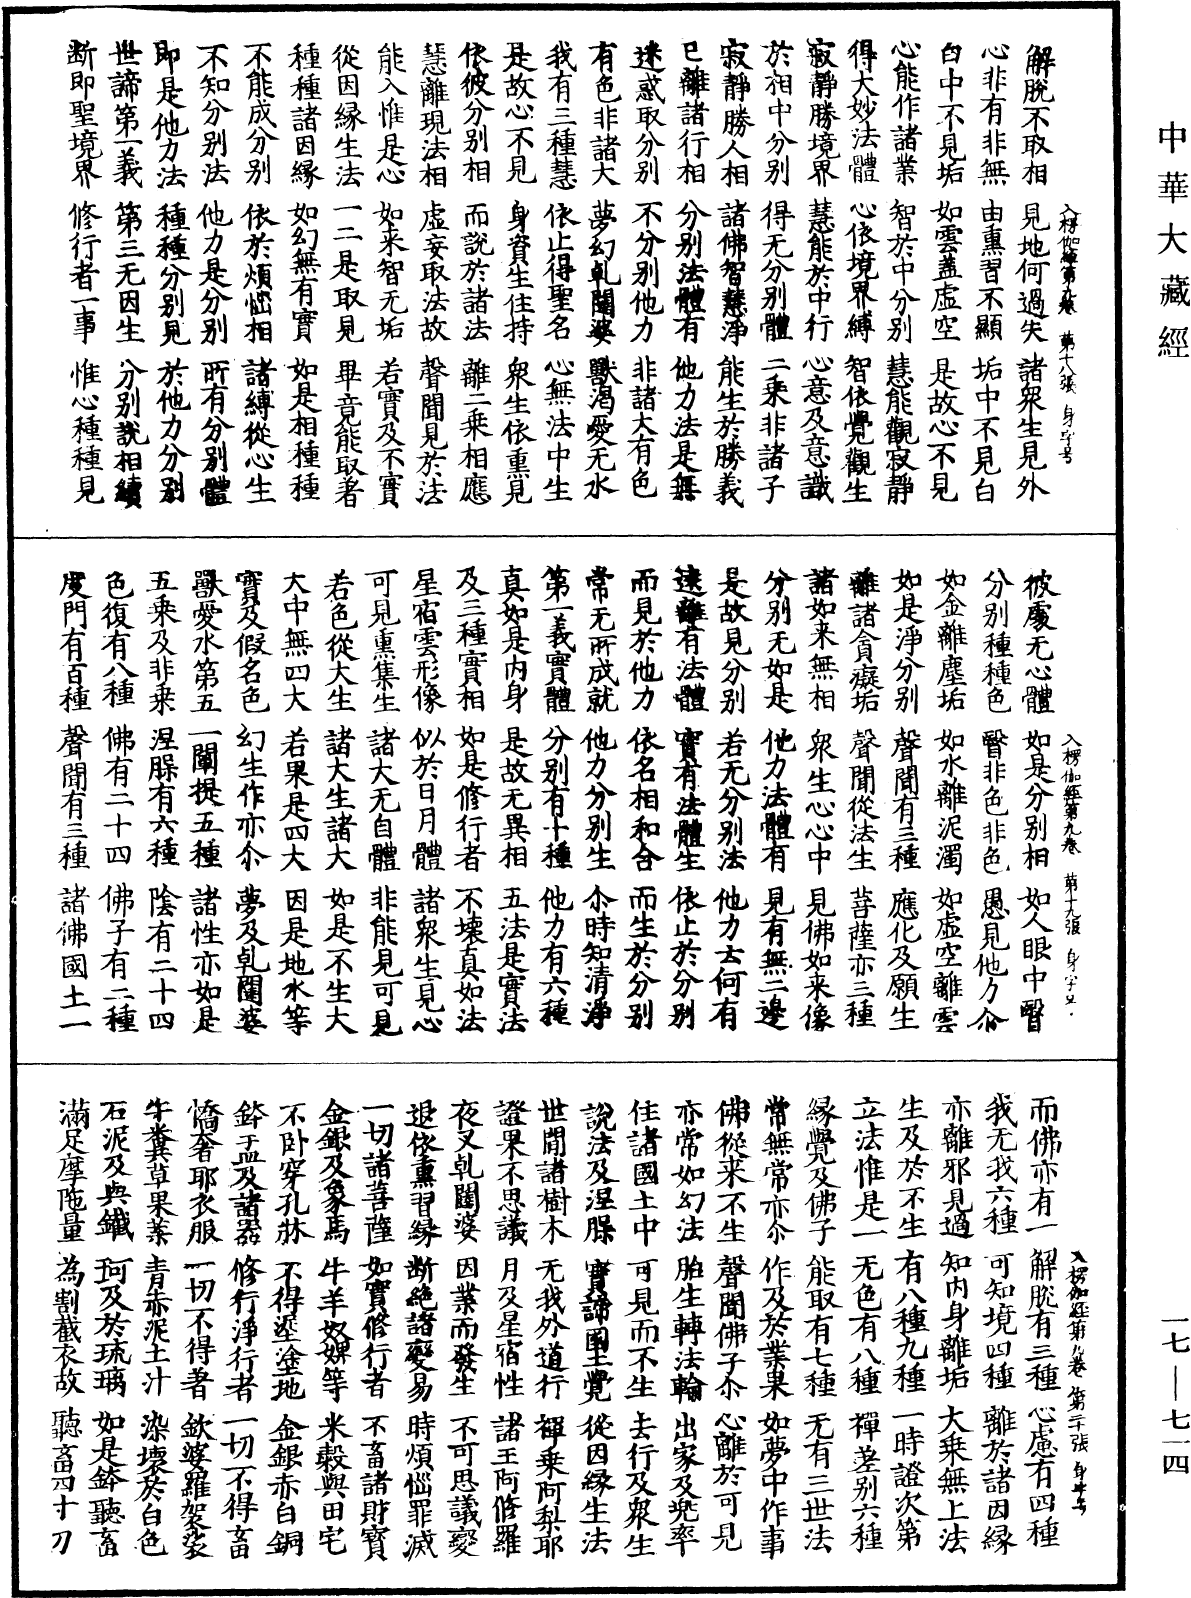 中華大藏經
解脫不取相　見地何過失　諸衆生見外
入楞伽經第九卷　第十八張　身字号
心非有非無　由熏習不顯　垢中不見白
白中不見垢　如雲蓋虛空　是故心不見
心能作諸業　智於中分別　慧能觀寂靜
得大妙法體　心依境界縛　智依覺觀生
寂靜勝境界　慧能於中行　心意及意識
於相中分別　得无分別體　二乘非諸子
寂靜勝人相　諸佛智慧淨　能生於勝義
已離諸行相　分別法體有　他力法是無
迷惑取分別　不分別他力　非諸大有色
有色非諸大　夢幻乹闥婆　獸渴愛无水
我有三種慧　依止得聖名　心無法中生
是故心不見　身資生住持　衆生依熏見
依彼分別相　而說於諸法　離二乘相應
慧離現法相　虛妄取法故　聲聞見於法
能入惟是心　如来智无垢　若實及不實
從因緣生法　一二是取見　畢竟能取著
種種諸因緣　如幻無有實　如是相種種
不能成分別　依於煩惱相　諸縛從心生
不知分別法　他力是分別　所有分別體
即是他力法　種種分別見　於他力分別
世諦第一義　第三无因生　分別說相續
斷即聖境界　修行者一事　惟心種種見
彼處无心體　如是分別相　如人眼中瞖
入楞伽經第九卷　第十九張　身字号
分別種種色　瞖非色非色　愚見他力尒
如金離塵垢　如水離泥濁　如虛空離雲
如是淨分別　聲聞有三種　應化及願生
離諸貪癡垢　聲聞從法生　菩薩亦三種
諸如来無相　衆生心心中　見佛如来像
分別无如是　他力法體有　見有無二邊
是故見分別　若无分別法　他力云何有
遠離有法體　實有法體生　依止於分別
而見於他力　依名相和合　而生於分別
常无所成就　他力分別生　尒時知清淨
第一義實體　分別有十種　他力有六種
真如是內身　是故无異相　五法是實法
及三種實相　如是修行者　不壞真如法
星宿雲形像　似於日月體　諸衆生見心
可見熏集生　諸大无自體　非能見可見
若色從大生　諸大生諸大　如是不生大
大中無四大　若果是四大　因是地水等
實及假名色　幻生作亦尒　夢及乹闥婆
獸愛水第五　一闡提五種　諸性亦如是
五乘及非乘　涅槃有六種　陰有二十四
色復有八種　佛有二十四　佛子有二種
度門有百種　聲聞有三種　諸佛國土一
而佛亦有一　解脫有三種　心慮有四種
入楞伽經第九卷　第二十張　身字号
我无我六種　可知境四種　離於諸因緣
亦離邪見過　知內身離垢　大乘無上法
生及於不生　有八種九種　一時證次第
立法惟是一　无色有八種　禪差別六種
緣覺及佛子　能取有七種　无有三世法
常無常亦尒　作及於業果　如夢中作事
佛從来不生　聲聞佛子尒　心離於可見
亦常如幻法　胎生轉法輪　出家及兜率
住諸國土中　可見而不生　去行及衆生
說法及涅槃　實諦國土覺　從因緣生法
世間諸樹木　无我外道行　禪乘阿梨耶
證果不思議　月及星宿性　諸王阿修羅
夜叉乹闥婆　因業而發生　不可思議變
退依熏習緣　斷絕諸變易　時煩惱罪滅
一切諸菩薩　如實修行者　不畜諸財寶
金銀及象馬　牛羊奴婢等　米穀與田宅
不卧穿孔牀　不得埿塗地　金銀赤白銅
鉢盂及諸器　修行淨行者　一切不得畜
憍奢耶衣服　一切不得著　欽婆羅袈裟
牛糞草果葉　青赤泥土汁　染壞於白色
石泥及與鐵　珂及於琉璃　如是鉢聽畜
滿足摩陁量　為割截衣故　聽畜四寸刀
一七—七一四